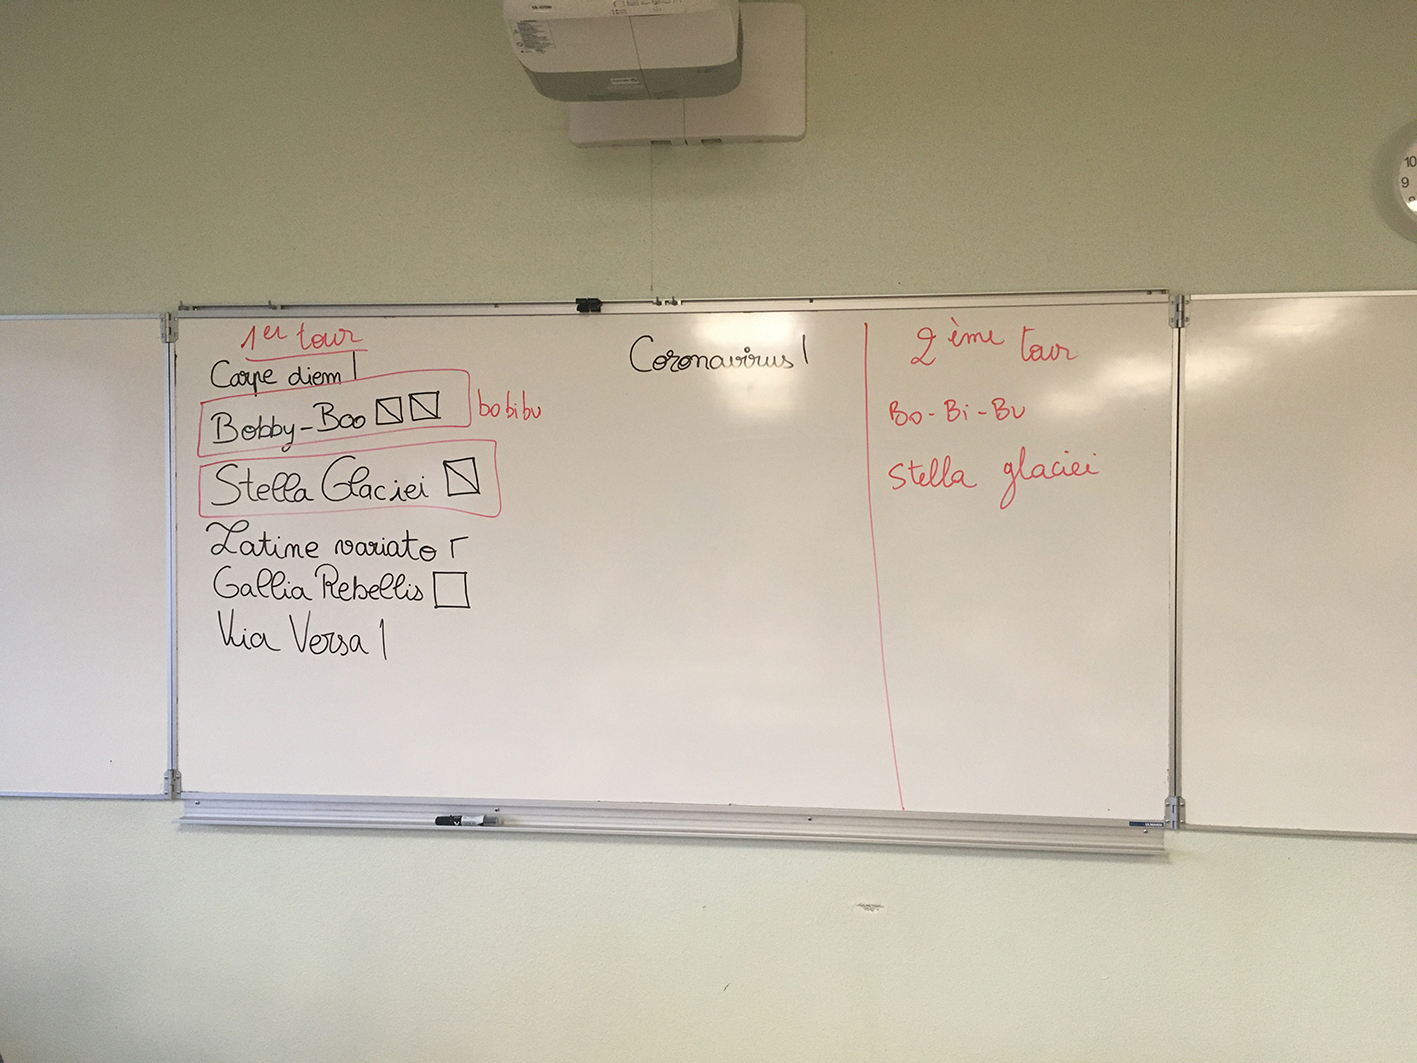 1er tour
Carpe diem
Bobby-Boo
bobibu
Stella Glaciei
Latine variato
Gallia Rebellis
Via Versa
Coronavirus
2ème tour
Bo-Bi-Bu
Stella glaciei
10
9
8